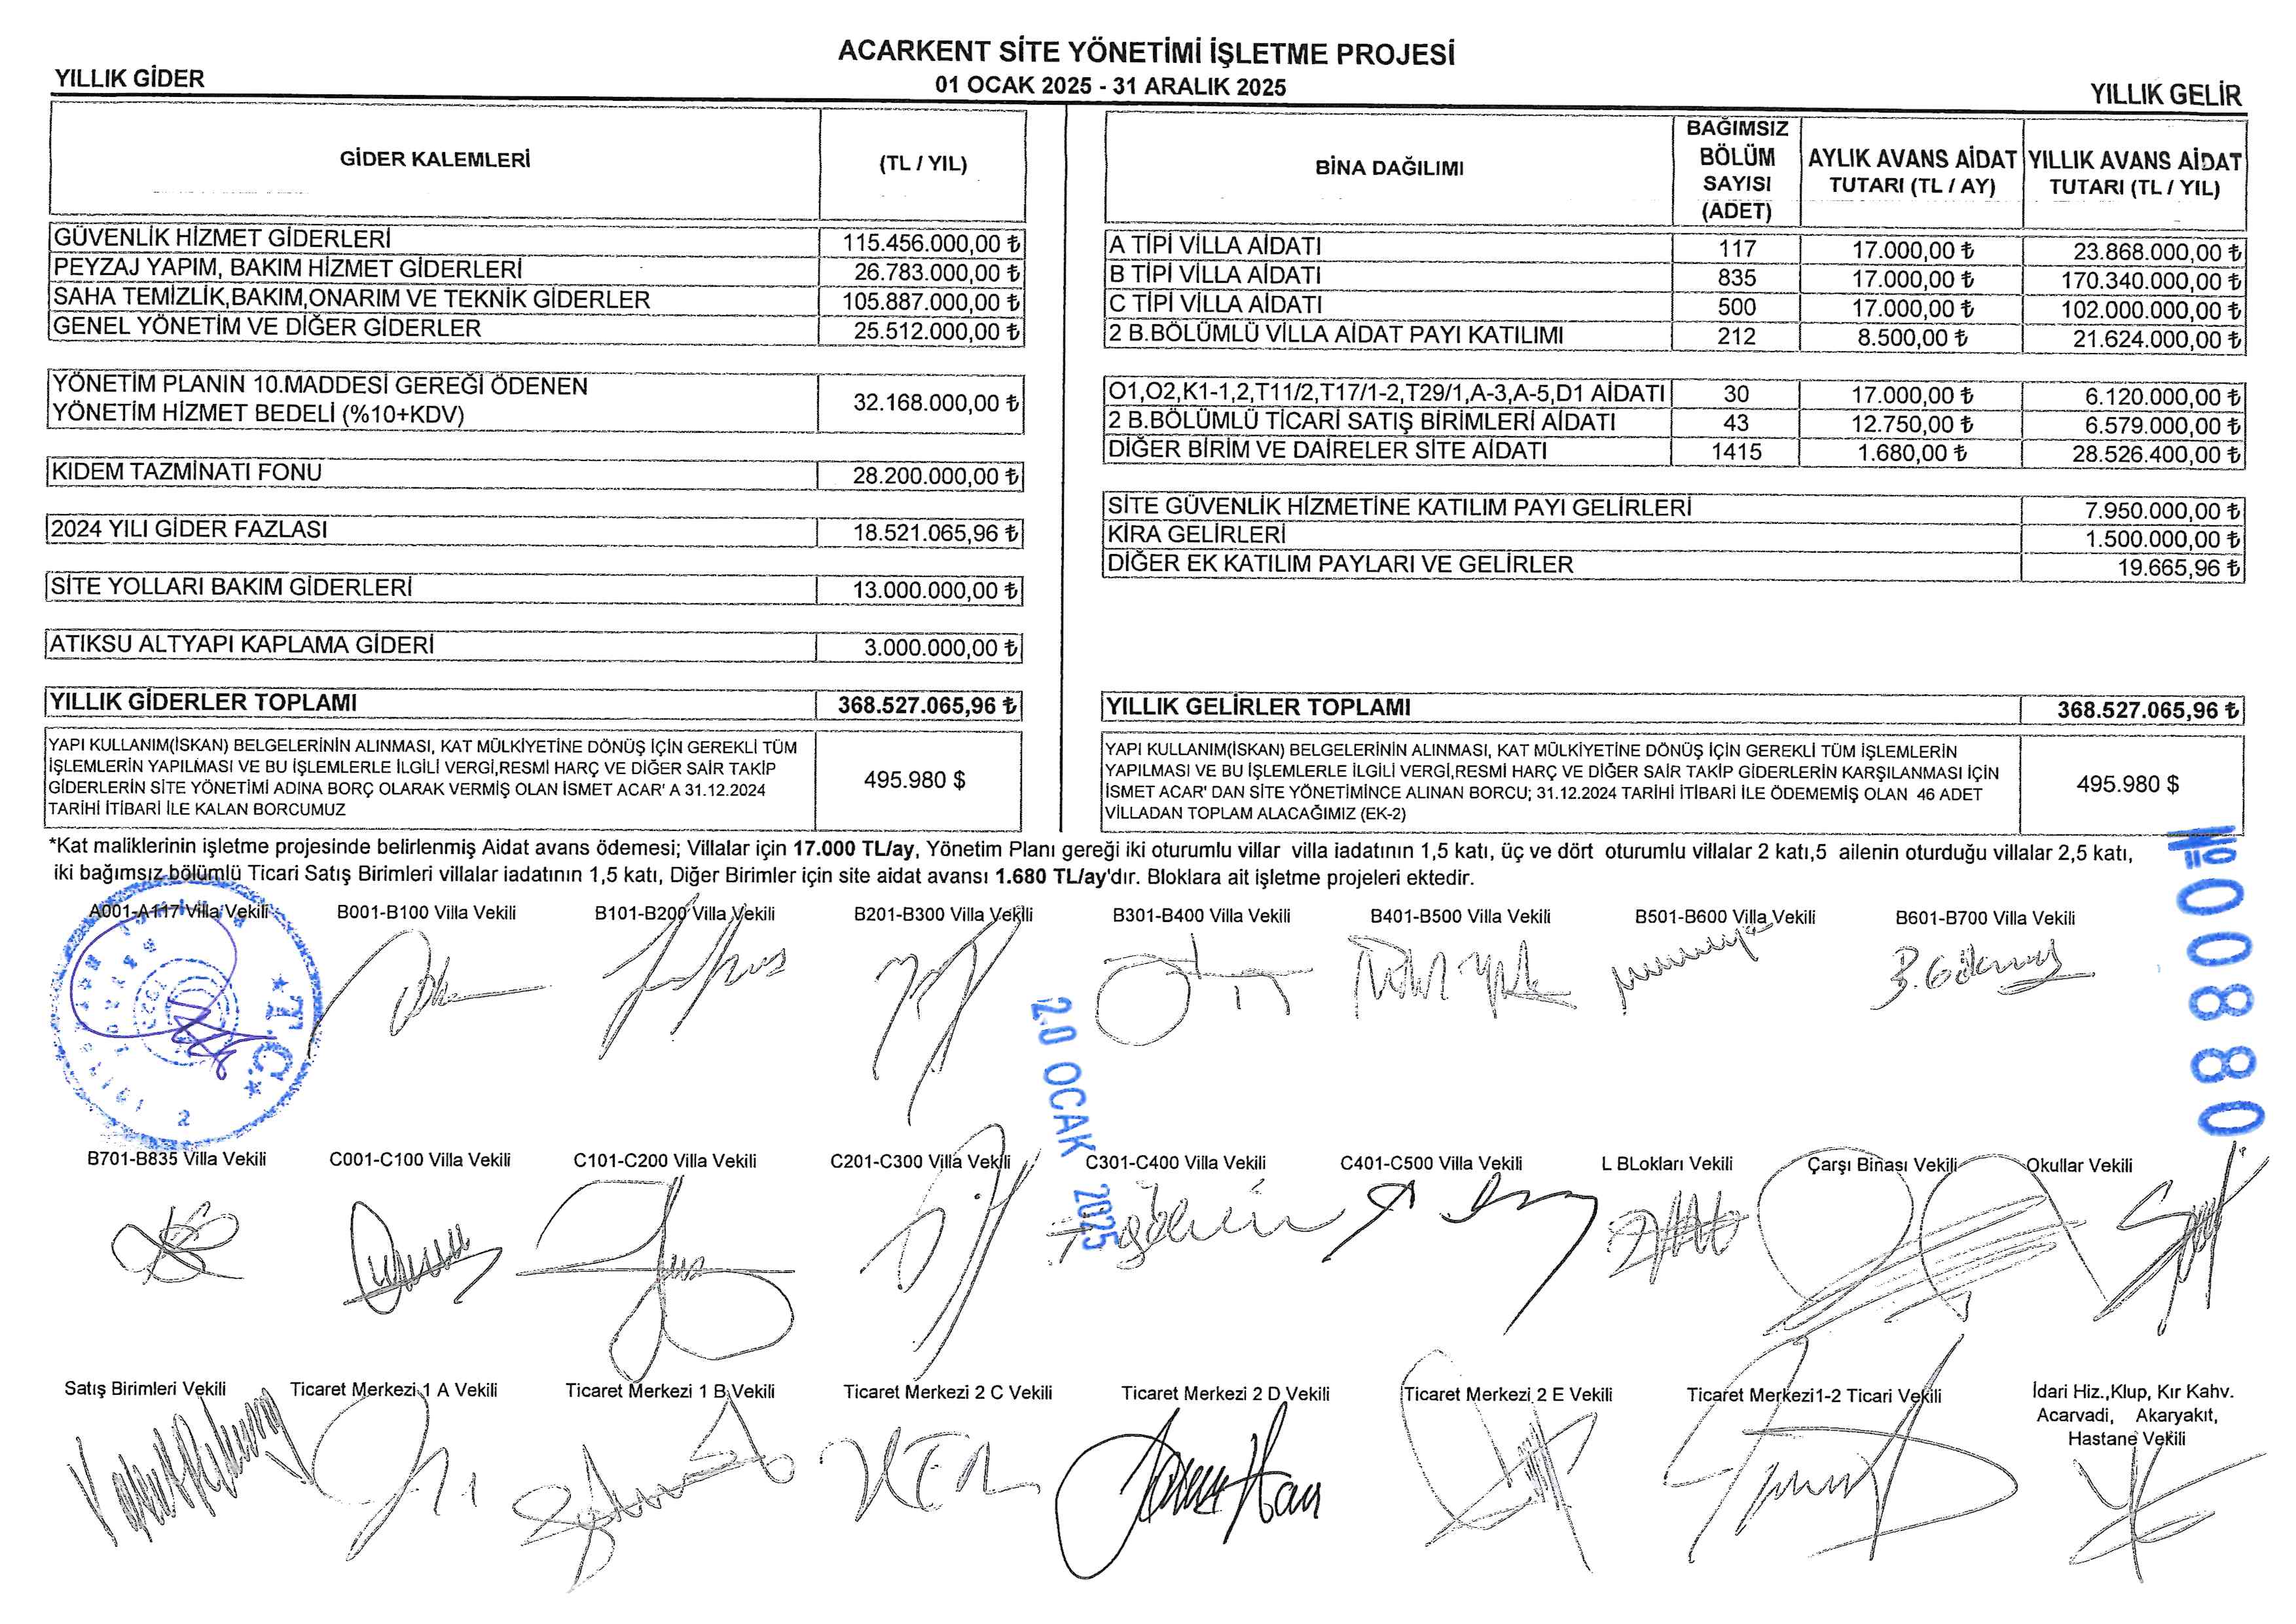 ACARKENT SİTE YÖNETİMİ İŞLETME PROJESİ
01 OCAK 2025 - 31 ARALIK 2025
YILLIK GİDER
GİDER KALEMLERİ (TL / YIL)
GÜVENLİK HİZMET GİDERLERİ 115.456.000,00 ₺
PEYZAJ YAPIM, BAKIM HİZMET GİDERLERİ 26.783.000,00 ₺
SAHA TEMİZLİK,BAKIM,ONARIM VE TEKNİK GİDERLER 105.887.000,00 ₺
GENEL YÖNETİM VE DİĞER GİDERLER 25.512.000,00 ₺
YÖNETİM PLANIN 10.MADDESİ GEREĞİ ÖDENEN
YÖNETİM HİZMET BEDELİ (%10+KDV) 32.168.000,00 ₺
KIDEM TAZMİNATI FONU 28.200.000,00 ₺
2024 YILI GİDER FAZLASI 18.521.065,96 ₺
SİTE YOLLARI BAKIM GİDERLERİ 13.000.000,00 ₺
ATIKSU ALTYAPI KAPLAMA GİDERİ 3.000.000,00 ₺
YILLIK GİDERLER TOPLAMI 368.527.065,96 ₺
YAPI KULLANIM(İSKAN) BELGELERİNİN ALINMASI, KAT MÜLKİYETİNE DÖNÜŞ İÇİN GEREKLİ TÜM
İŞLEMLERİN YAPILMASI VE BU İŞLEMLERLE İLGİLİ VERGİ,RESMİ HARÇ VE DİĞER SAİR TAKİP
GİDERLERİN SİTE YÖNETİMİ ADINA BORÇ OLARAK VERMİŞ OLAN İSMET ACAR' A 31.12.2024
TARİHİ İTİBARİ İLE KALAN BORCUMUZ
495.980 $
YILLIK GELİR
BİNA DAĞILIMI
BAĞIMSIZ
BÖLÜM
SAYISI
(ADET)
AYLIK AVANS AİDAT
TUTARI (TL / AY)
YILLIK AVANS AİDAT
TUTARI (TL / YIL)
A TİPİ VİLLA AİDATI 117 17.000,00 ₺ 23.868.000,00 ₺
B TİPİ VİLLA AİDATI 835 17.000,00 ₺ 170.340.000,00 ₺
C TİPİ VİLLA AİDATI 500 17.000,00 ₺ 102.000.000,00 ₺
2 B.BÖLÜMLÜ VİLLA AİDAT PAYI KATILIMI 212 8.500,00 ₺ 21.624.000,00 ₺
O1,O2,K1-1,2,T11/2,T17/1-2,T29/1,A-3,A-5,D1 AİDATI 30 17.000,00 ₺ 6.120.000,00 ₺
2 B.BÖLÜMLÜ TİCARİ SATIŞ BİRİMLERİ AİDATI 43 12.750,00 ₺ 6.579.000,00 ₺
DİĞER BİRİM VE DAİRELER SİTE AİDATI 1415 1.680,00 ₺ 28.526.400,00 ₺
SİTE GÜVENLİK HİZMETİNE KATILIM PAYI GELİRLERİ 7.950.000,00 ₺
KİRA GELİRLERİ 1.500.000,00 ₺
DİĞER EK KATILIM PAYLARI VE GELİRLER 19.665,96 ₺
YILLIK GELİRLER TOPLAMI 368.527.065,96 ₺
YAPI KULLANIM(İSKAN) BELGELERİNİN ALINMASI, KAT MÜLKİYETİNE DÖNÜŞ İÇİN GEREKLİ TÜM İŞLEMLERİN
YAPILMASI VE BU İŞLEMLERLE İLGİLİ VERGİ,RESMİ HARÇ VE DİĞER SAİR TAKİP GİDERLERİN KARŞILANMASI İÇİN
İSMET ACAR' DAN SİTE YÖNETİMİNCE ALINAN BORCU; 31.12.2024 TARİHİ İTİBARİ İLE ÖDEMEMİŞ OLAN 46 ADET
VİLLADAN TOPLAM ALACAĞIMIZ (EK-2)
495.980 $
*Kat maliklerinin işletme projesinde belirlenmiş Aidat avans ödemesi; Villalar için 17.000 TL/ay, Yönetim Planı gereği iki oturumlu villar villa iadatının 1,5 katı, üç ve dört oturumlu villalar 2 katı,5 ailenin oturduğu villalar 2,5 katı,
iki bağımsız bölümlü Ticari Satış Birimleri villalar iadatının 1,5 katı, Diğer Birimler için site aidat avansı 1.680 TL/ay'dır. Bloklara ait işletme projeleri ektedir.
Nº 00880
A001-A117 Villa Vekili B001-B100 Villa Vekili B101-B200 Villa Vekili B201-B300 Villa Vekili B301-B400 Villa Vekili B401-B500 Villa Vekili B501-B600 Villa Vekili B601-B700 Villa Vekili
B.Gökmen
T.C.
2
20 OCAK 2025
B701-B835 Villa Vekili C001-C100 Villa Vekili C101-C200 Villa Vekili C201-C300 Villa Vekili C301-C400 Villa Vekili C401-C500 Villa Vekili L BLokları Vekili Çarşı Binası Vekili Okullar Vekili
Satış Birimleri Vekili Ticaret Merkezi 1 A Vekili Ticaret Merkezi 1 B Vekili Ticaret Merkezi 2 C Vekili Ticaret Merkezi 2 D Vekili Ticaret Merkezi 2 E Vekili Ticaret Merkezi1-2 Ticari Vekili İdari Hiz.,Klup, Kır Kahv.
Acarvadi, Akaryakıt,
Hastane Vekili